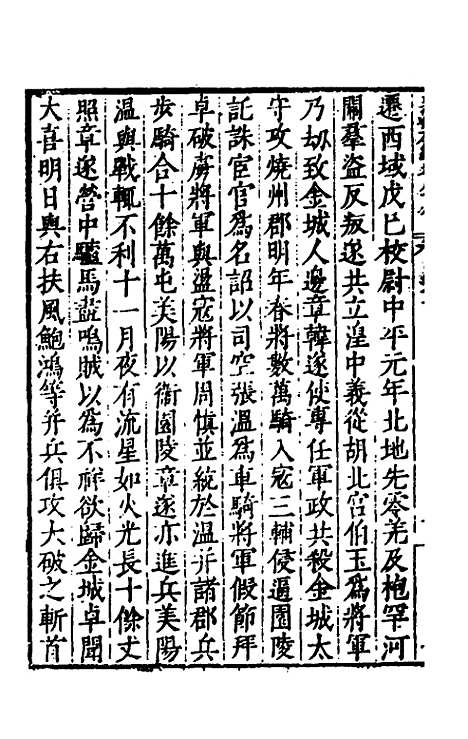 遷西域戊巳校尉中平元年北地先零羌及枹罕河
關羣盜反叛遂共立湟中義從胡北宮伯玉爲將軍
乃刼致金城人邊章韓遂使專任軍政共殺金城太
守攻燒州郡明年春將數萬騎入寇三輔侵逼園陵
託誅宦官爲名詔以司空張溫爲車騎將軍假節拜
卓破虜將軍與盪寇將軍周慎並統於溫并諸郡兵
步騎合十餘萬屯美陽以衞園陵章遂亦進兵美陽
溫與戰輒不利十一月夜有流星如火光長十餘丈
照章遂營中驢馬盡鳴賊以爲不祥欲歸金城卓聞
大喜明日與右扶風鮑鴻等并兵俱攻大破之斬首